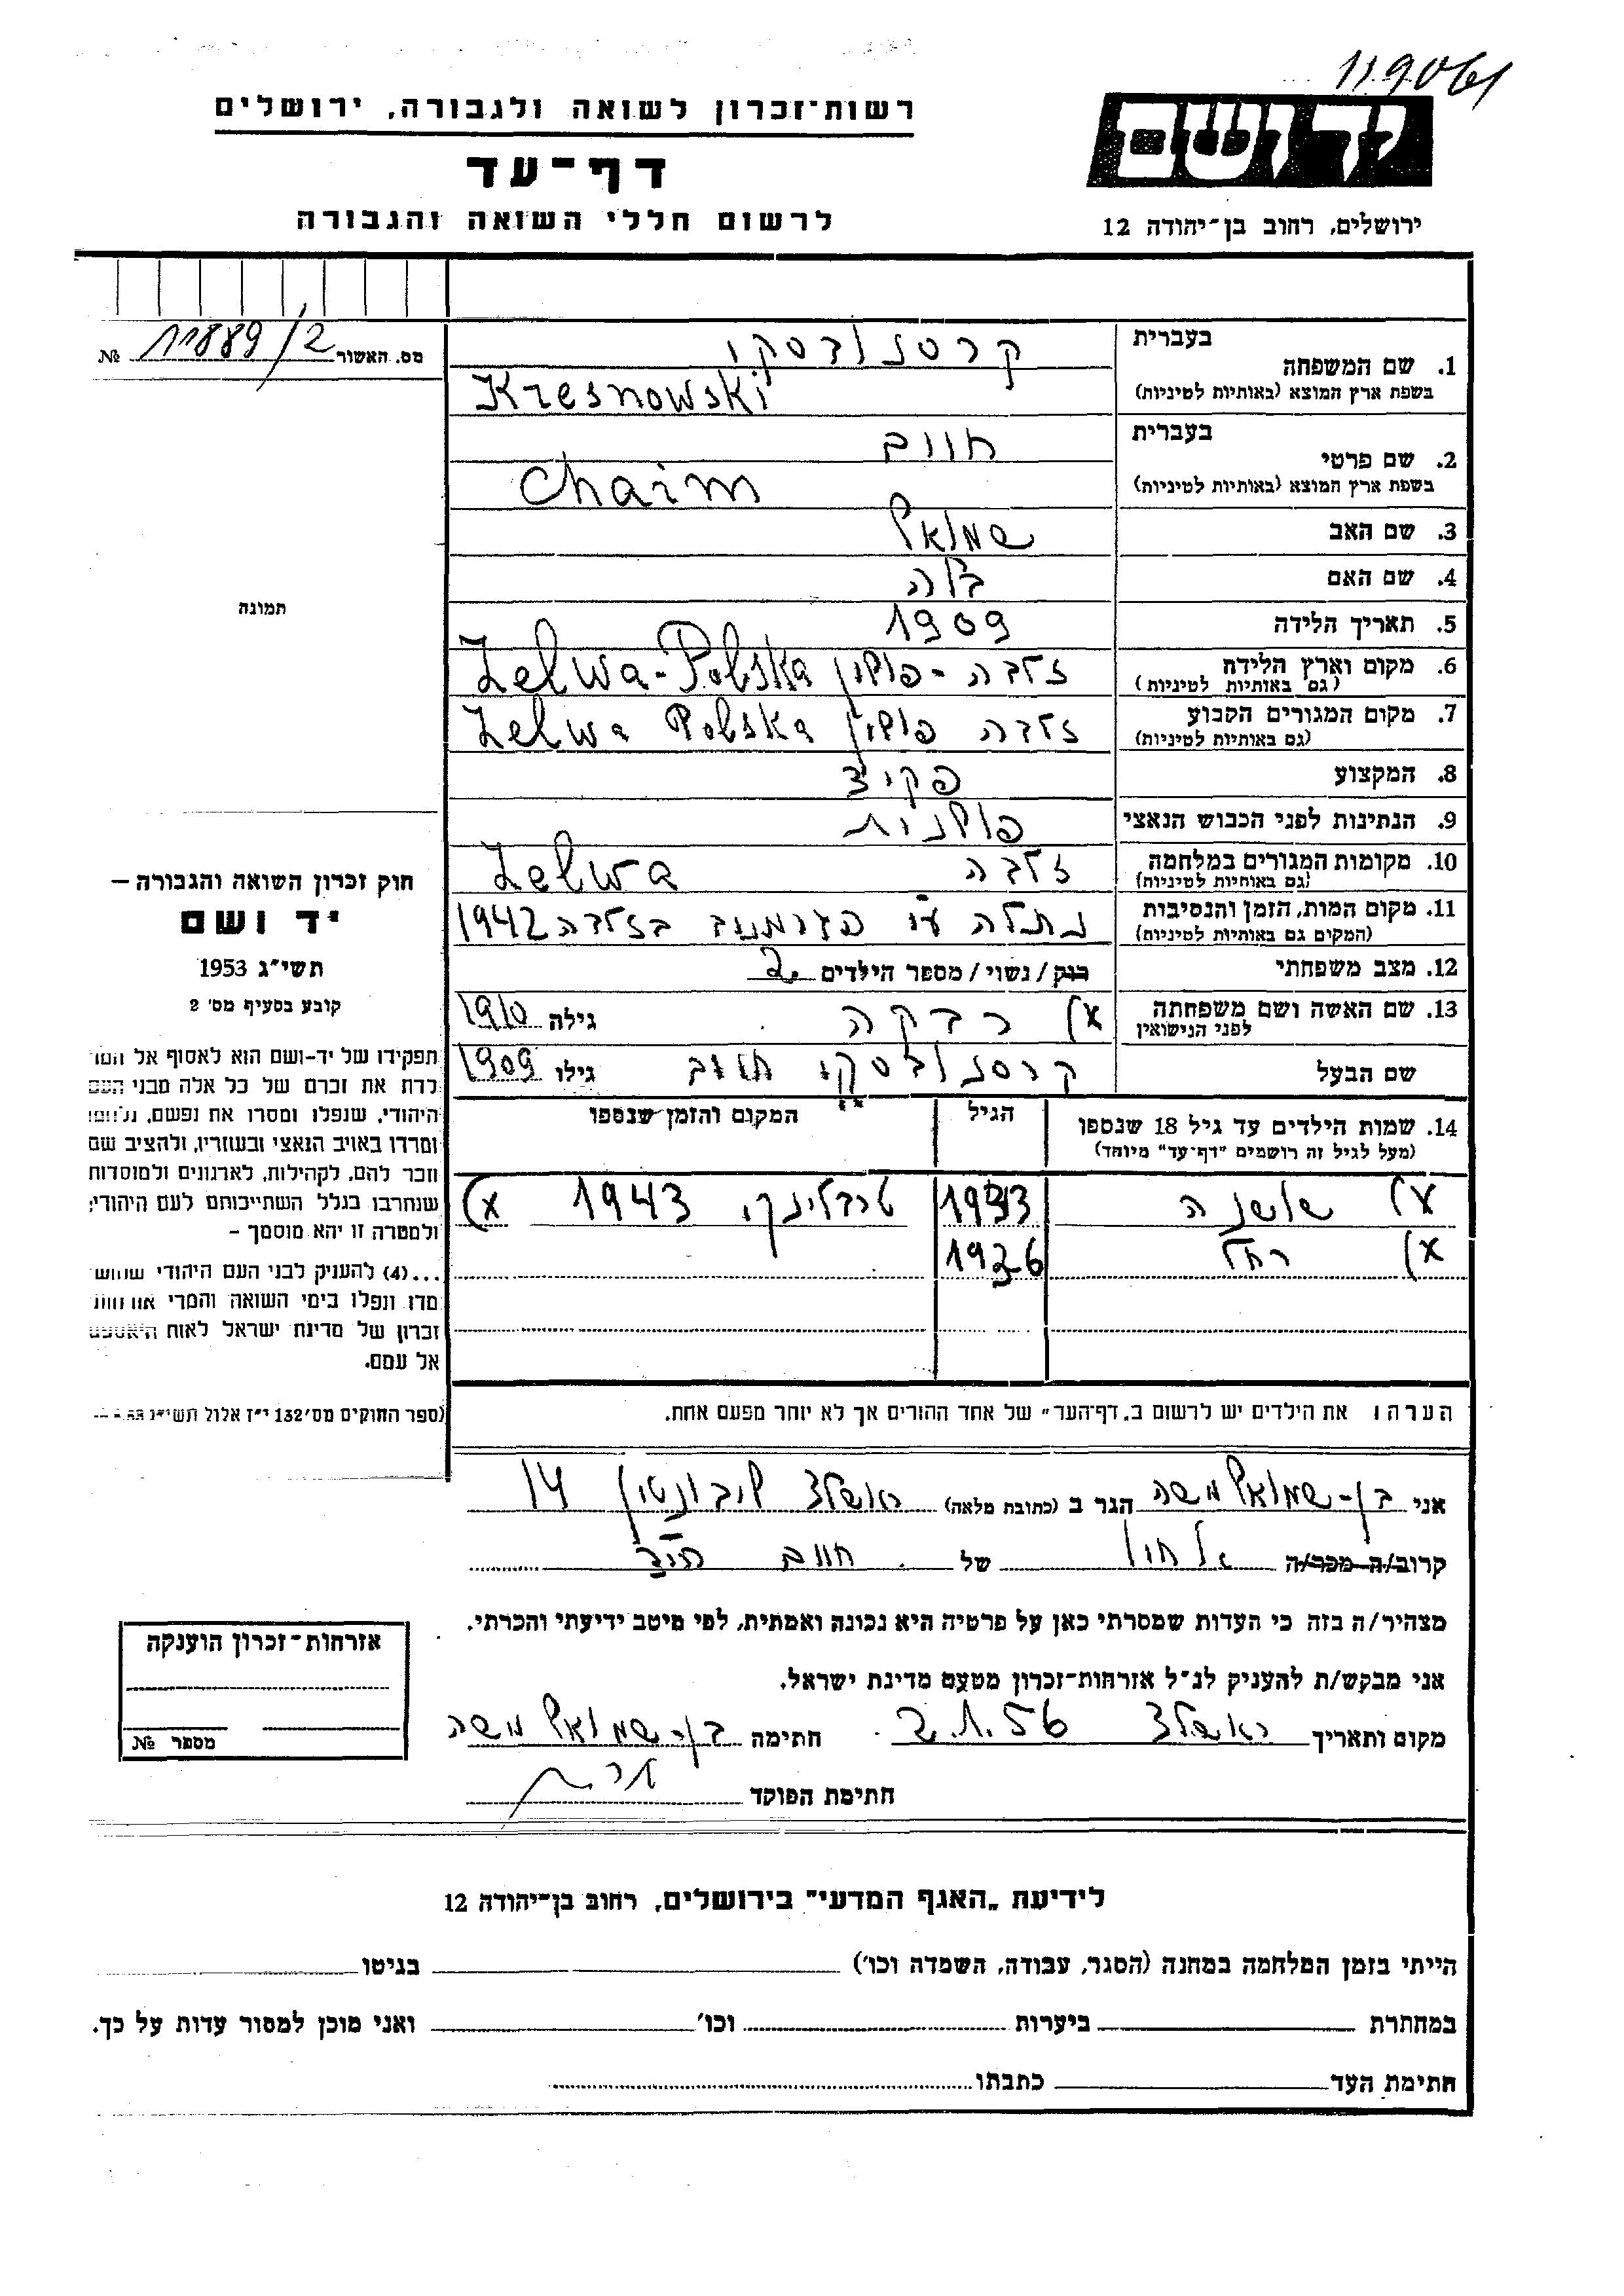 119061
רשות־זכרון לשואה ולגבורה, ירושלים
יד ושם
דף־עד
לרשום חללי השואה והגבורה
ירושלים, רחוב בן־יהודה 12
מס. האשור 11889/2 №
בעברית קרסנובסקי
1. שם המשפחה
בשפת ארץ המוצא (באותיות לטיניות) Kresnowski
בעברית חיים
2. שם פרטי
בשפת ארץ המוצא (באותיות לטיניות) Chaim
3. שם האב שמואל
4. שם האם בלה
5. תאריך הלידה 1909
6. מקום וארץ הלידה זלבה - פולין Zelwa-Polska
(גם באותיות לטיניות)
7. מקום המגורים הקבוע זלבה פולין Zelwa Polska
(גם באותיות לטיניות)
8. המקצוע פקיד
9. הנתינות לפני הכבוש הנאצי פולנית
10. מקומות המגורים במלחמה זלבה Zelwa
(גם באותיות לטיניות)
11. מקום המות, הזמן והנסיבות נתלה ע"י הגרמנים בזלבה 1942
(המקום גם באותיות לטיניות)
12. מצב משפחתי רוק / נשוי / מספר הילדים 2
13. שם האשה ושם משפחתה x) רבקה גילה 1910
לפני הנישואין
שם הבעל קרסנובסקי חיים גילו 1909
14. שמות הילדים עד גיל 18 שנספו הגיל המקום והזמן שנספו
(מעל לגיל זה רושמים "דף־עד" מיוחד)
x) שושנה 1933 טרבלינקה 1943 x)
x) רחל 1936
הערה: את הילדים יש לרשום ב"דף־העד" של אחד ההורים אך לא יותר מפעם אחת.
תמונה
חוק זכרון השואה והגבורה –
יד ושם
תשי"ג 1953
קובע בסעיף מס' 2
תפקידו של יד-ושם הוא לאסוף אל המו
לדת את זכרם של כל אלה מבני העם
היהודי, שנפלו ומסרו את נפשם, נלחמו
ומרדו באויב הנאצי ובעוזריו, ולהציב שם
וזכר להם, לקהילות, לארגונים ולמוסדות
שנחרבו בגלל השתייכותם לעם היהודי;
ולמטרה זו יהא מוסמך –
...(4) להעניק לבני העם היהודי שהוש
מדו ונפלו בימי השואה והמרי אזרחות
זכרון של מדינת ישראל לאות היאספם
אל עמם.
(ספר החוקים מס' 132 י"ז אלול תשי"ג
אני בן-שמואל משה הגר ב (כתובת מלאה) ראשלצ 14
קרוב/ה מכר/ה של חיים
מצהיר/ה בזה כי העדות שמסרתי כאן על פרטיה היא נכונה ואמתית, לפי מיטב ידיעתי והכרתי.
אני מבקש/ת להעניק לנ"ל אזרחות-זכרון מטעם מדינת ישראל.
מקום ותאריך ראשלצ 2.1.56 חתימה בן-שמואל משה
חתימת הפוקד
אזרחות-זכרון הוענקה
מספר №
לידיעת "האגף המדעי" בירושלים, רחוב בן־יהודה 12
הייתי בזמן המלחמה במחנה (הסגר, עבודה, השמדה וכו') בגיטו
במחתרת ביערות וכו' ואני מוכן למסור עדות על כך.
חתימת העד כתבתו